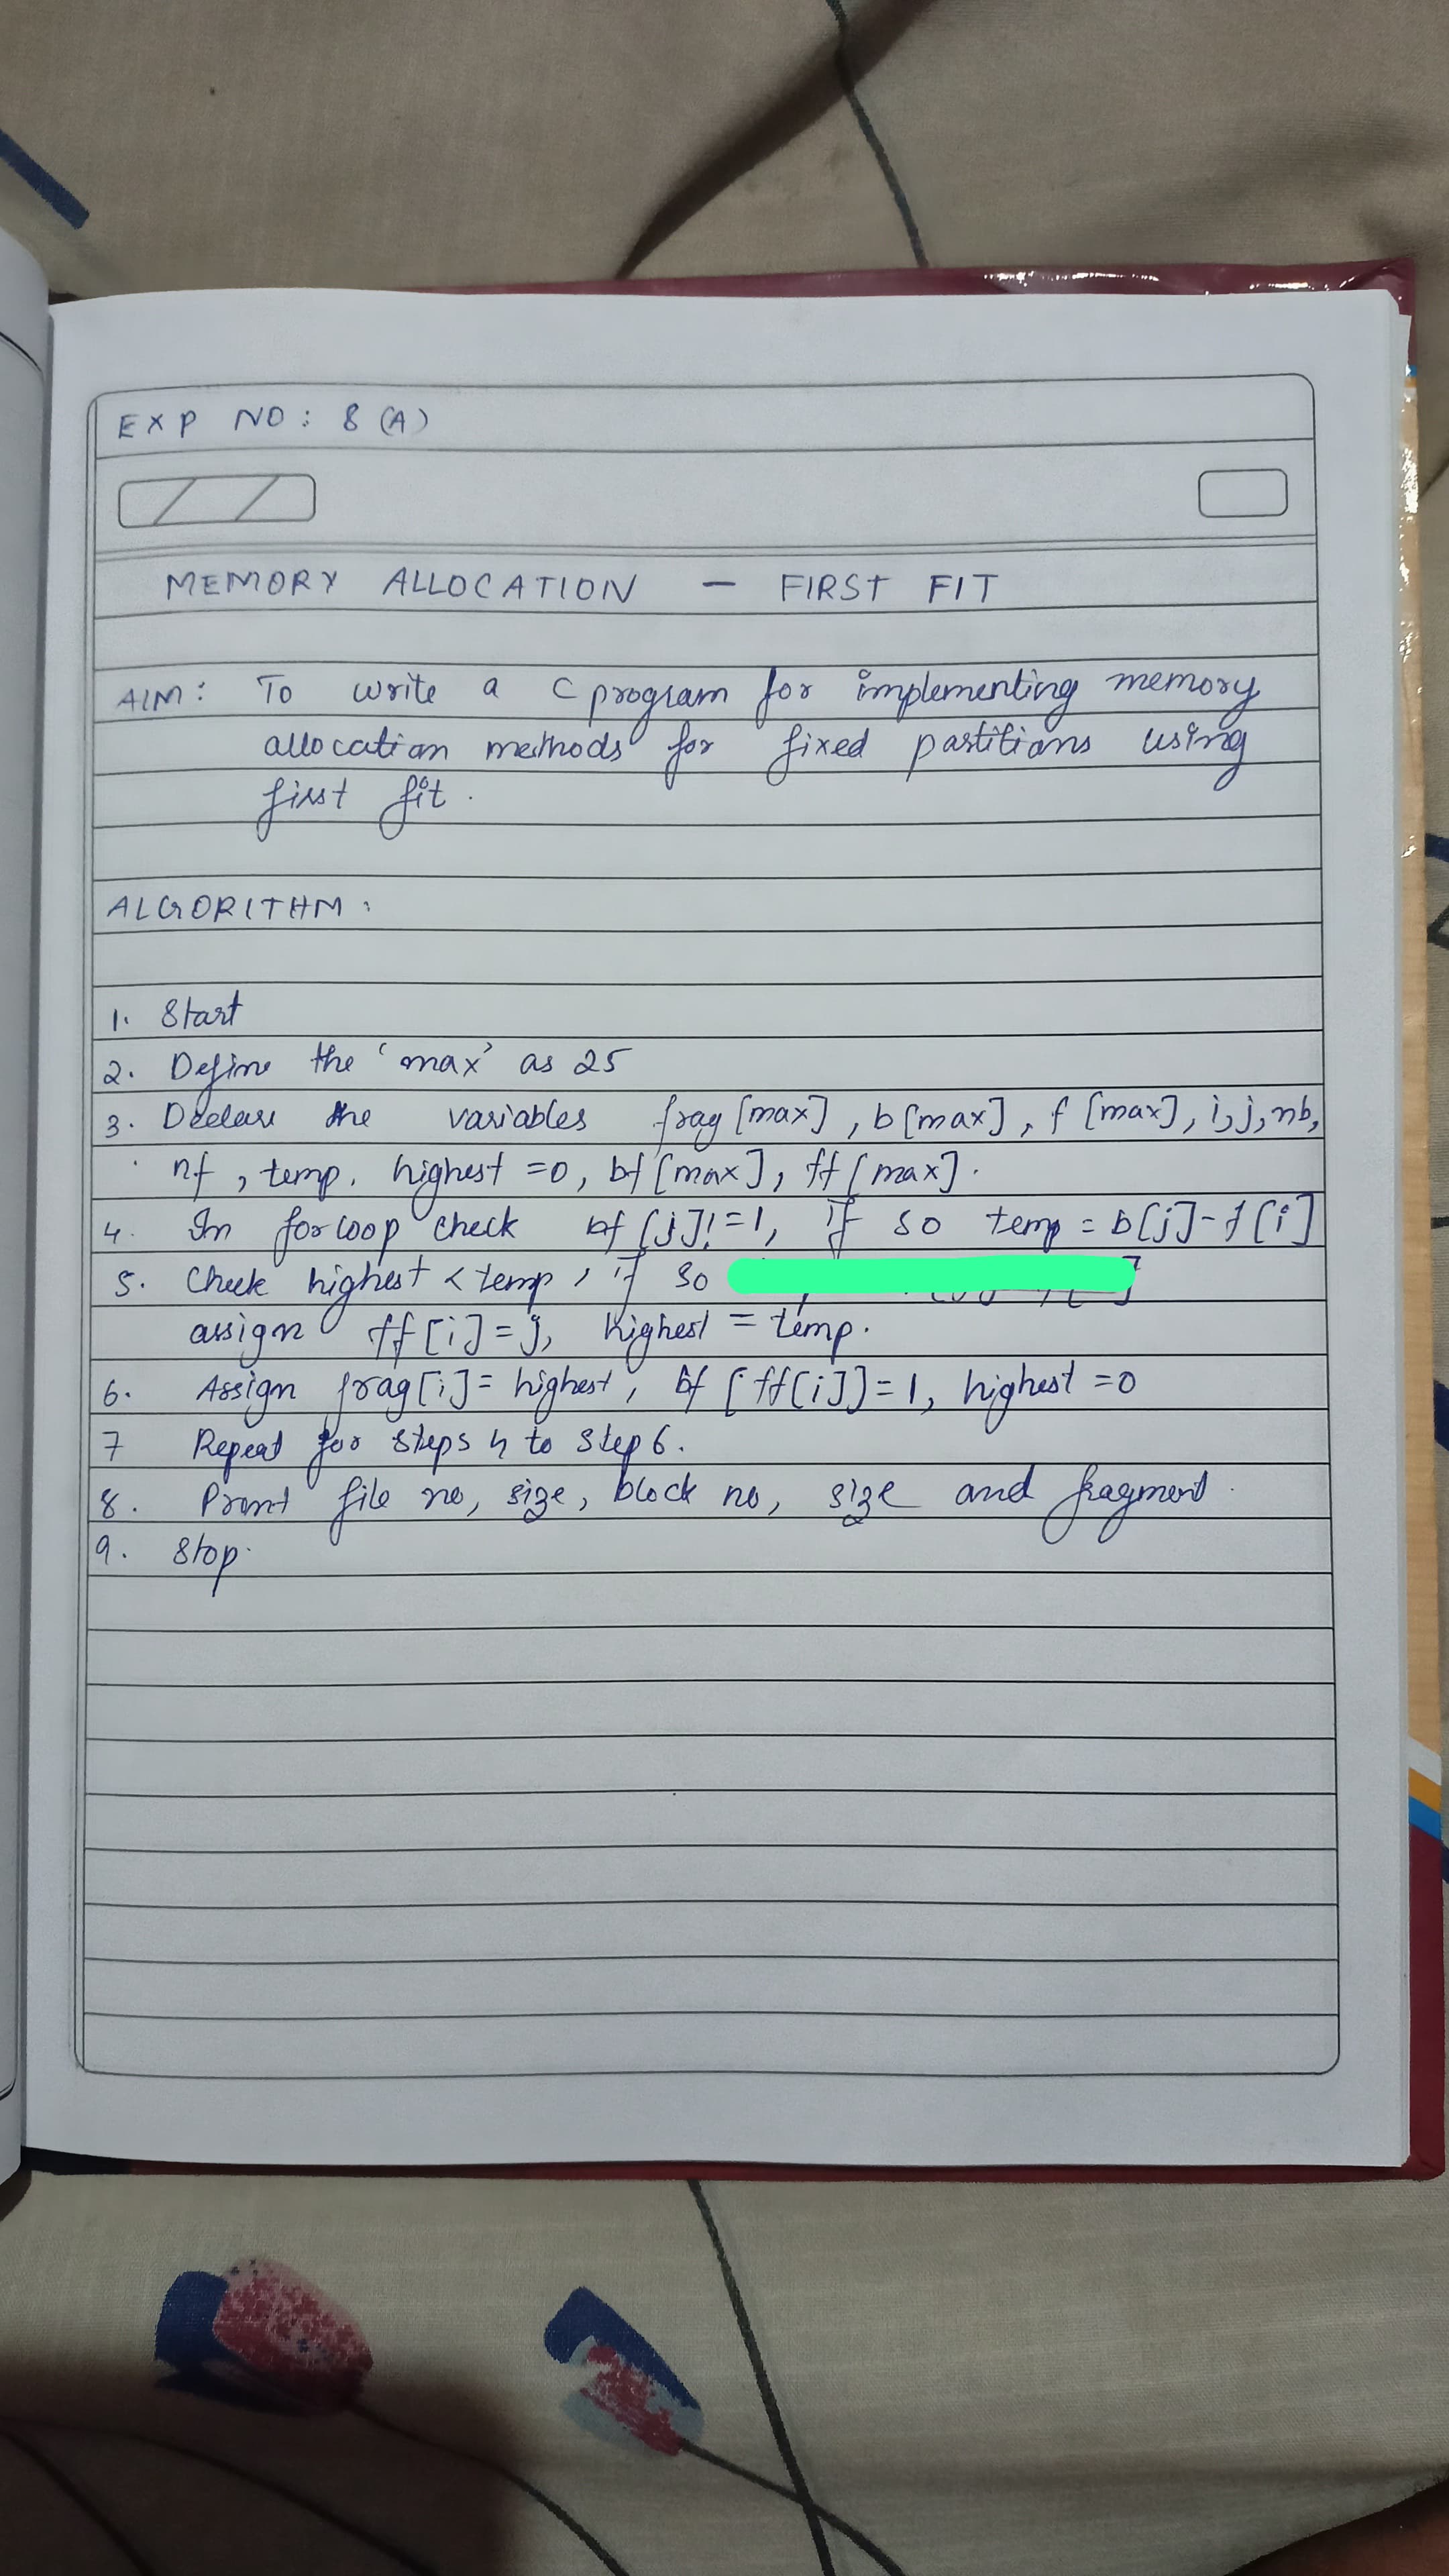 EXP NO: 8 (A)
MEMORY ALLOCATION - FIRST FIT
AIM: To write a C program for implementing memory
allocation methods for fixed partitions using
first fit.
ALGORITHM:
1. Start
2. Define the 'max' as 25
3. Declare the variables frag [max], b[max], f [max], i, j, nb,
nf, temp, highest =0, bf [max], ff [max].
4. In for loop check bf [j]! =1, if so temp = b[j]-f[i]
5. Check highest < temp, if so
assign ff[i]=j, highest = temp.
6. Assign frag[i]= highest, bf [ff[i]]=1, highest =0
7 Repeat for steps 4 to step 6.
8. Print file no, size, block no, size and fragment.
9. Stop.